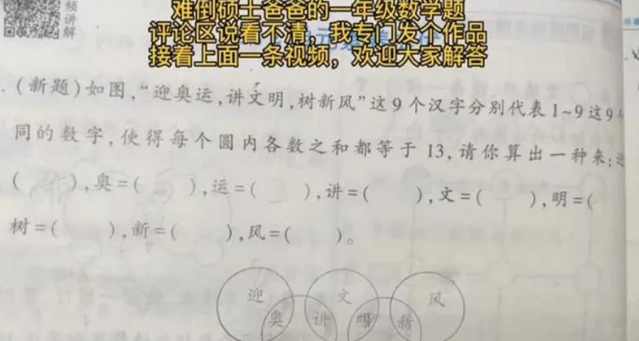 频
讲
解
难到硕士爸爸的一年级数学题
评论区说看不清，我专门发个作品
接着上面一条视频，欢迎大家解答
.(新题)如图,“迎奥运,讲文明,树新风”这9个汉字分别代表1~9这9
同的数字,使得每个圆内各数之和都等于13,请你算出一种来:迎
( ),奥=( ),运=( ),讲=( ),文=( ),明=(
树=( ),新=( ),风=( )。
迎 文 风
奥 讲 明 新